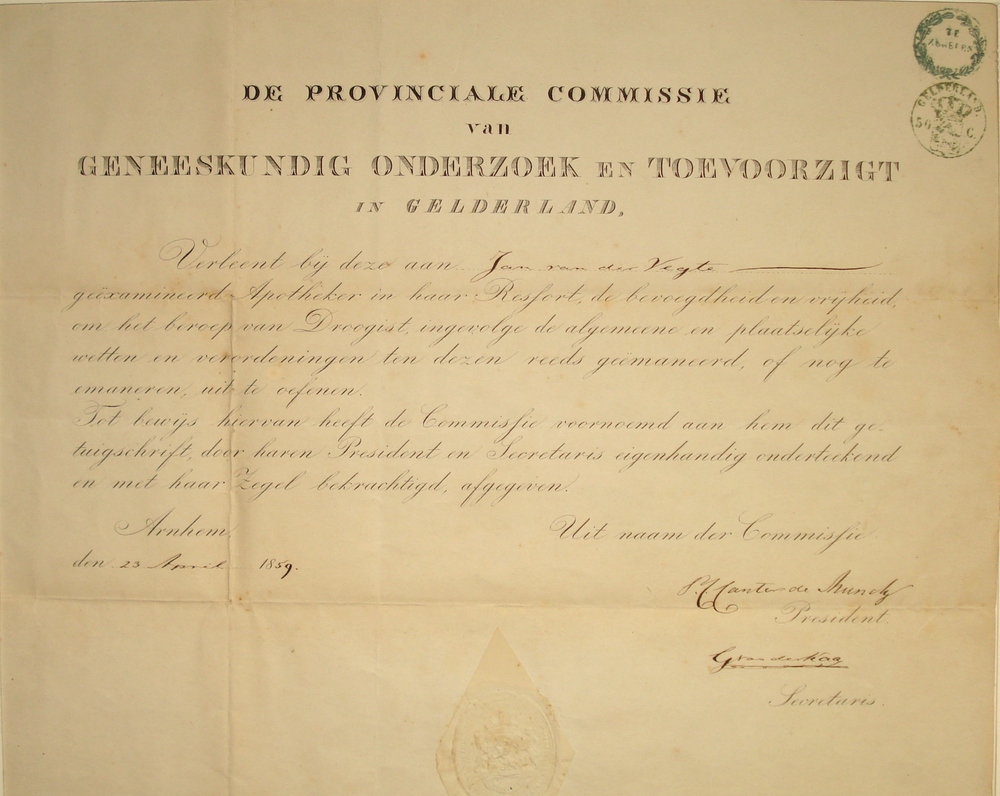 TE
ARNHEM
GELDERLAND.
50 C.
DE PROVINCIALE COMMISSIE
van
GENEESKUNDIG ONDERZOEK EN TOEVOORZIGT
IN GELDERLAND,
Verleent bij deze aan Jan van der Vegte
geëxamineerd Apotheker in haar Ressort, de bevoegdheid en vrijheid,
om het beroep van Droogist, ingevolge de algemeene en plaatselijke
wetten en verordeningen ten dezen reeds geëmaneerd, of nog te
emaneren, uit te oefenen.
Tot bewijs hiervan heeft de Commissie voornoemd aan hem dit ge-
tuigschrift, door haren President en Secretaris eigenhandig onderteekend
en met haar Zegel bekrachtigd, afgegeven.
Arnhem,
den 23 April 1859.
Uit naam der Commissie
Kanter de Munck
President.
G van der Kaag
Secretaris.